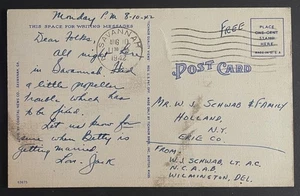 Monday P.M. 8-10-42
THIS SPACE FOR WRITING MESSAGES
Dear Folks,
All night here
in Savannah. Had
a little propeller
trouble which has
to be fixed.
Let us know for
sure when Betty is
getting married.
Love. Jack
SAVANNAH
1942
FREE
POST CARD
MR. W. J. SCHWAB & FAMILY
HOLLAND,
N.Y.
ERIE CO.
FROM,
W. J. SCHWAB, LT. A.C.
N.C.A.A.B.
WILMINGTON, DEL.